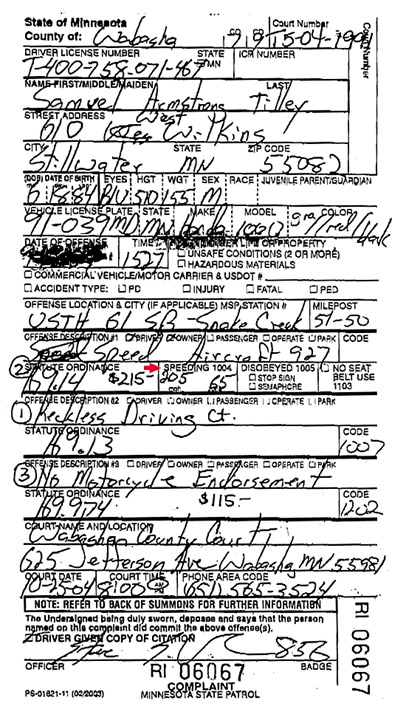 State of Minnesota
County of: Wabasha
Court Number
County Number
DRIVER LICENSE NUMBER STATE ICR NUMBER
T-400-758-071-467 MN
NAME-FIRST/MIDDLE/MAIDEN LAST
Samuel Armstrong Tilley
STREET ADDRESS
610 West Wilkins
CITY STATE ZIP CODE
Stillwater MN 55082
(DOB) DATE OF BIRTH EYES HGT WGT SEX RACE JUVENILE PARENT/GUARDIAN
6 18 84 BLU 510 155 M
VEHICLE LICENSE PLATE STATE MAKE MODEL COLOR
71-039MD MN Honda 1000 gray/red/black
DATE OF OFFENSE TIME ENDANGER LIFE OR PROPERTY
1527 UNSAFE CONDITIONS (2 OR MORE)
HAZARDOUS MATERIALS
COMMERCIAL VEHICLE/MOTOR CARRIER & USDOT #
ACCIDENT TYPE: PD INJURY FATAL PED
OFFENSE LOCATION & CITY (IF APPLICABLE) MSP STATION # MILEPOST
USTH 61 SB - Snake Creek 51-50
OFFENSE DESCRIPTION #1 DRIVER OWNER PASSENGER OPERATE PARK CODE
Speed Aircraft 927
2 STATUTE ORDINANCE SPEEDING 1004 DISOBEYED 1005 NO SEAT BELT USE 1103
169.14 $215- 205 65 STOP SIGN
SEMAPHORE
OFFENSE DESCRIPTION #2 DRIVER OWNER PASSENGER OPERATE PARK
1 Reckless Driving Ct.
STATUTE ORDINANCE CODE
169.13 1007
OFFENSE DESCRIPTION #3 DRIVER OWNER PASSENGER OPERATE PARK
3 No Motorcycle Endorsement
STATUTE ORDINANCE $115- CODE
169.974 1202
COURT-NAME AND LOCATION
Wabasha County Court,
625 Jefferson Ave Wabasha MN 55981
COURT DATE COURT TIME PHONE AREA CODE
10-25-04 8:00 AM (651) 565-3524
NOTE: REFER TO BACK OF SUMMONS FOR FURTHER INFORMATION
The Undersigned being duly sworn, deposes and says that the person
named on this complaint did commit the above offense(s).
DRIVER GIVEN COPY OF CITATION
836
OFFICER BADGE
RI 06067
COMPLAINT
PS-01821-11 (02/2003) MINNESOTA STATE PATROL
RI 06067